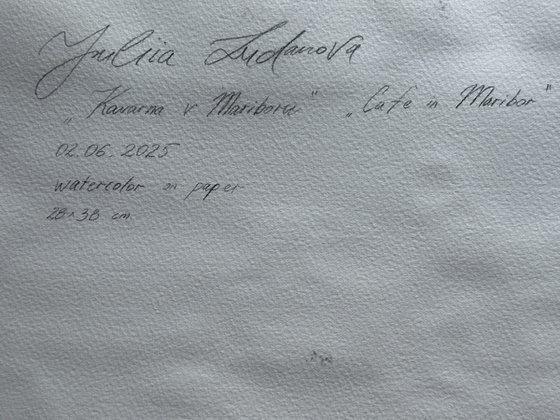 Yuliia Zudanova
„Kavarna v Mariboru" „Cafe in Maribor"
02.06.2025
watercolor on paper
28×38 cm